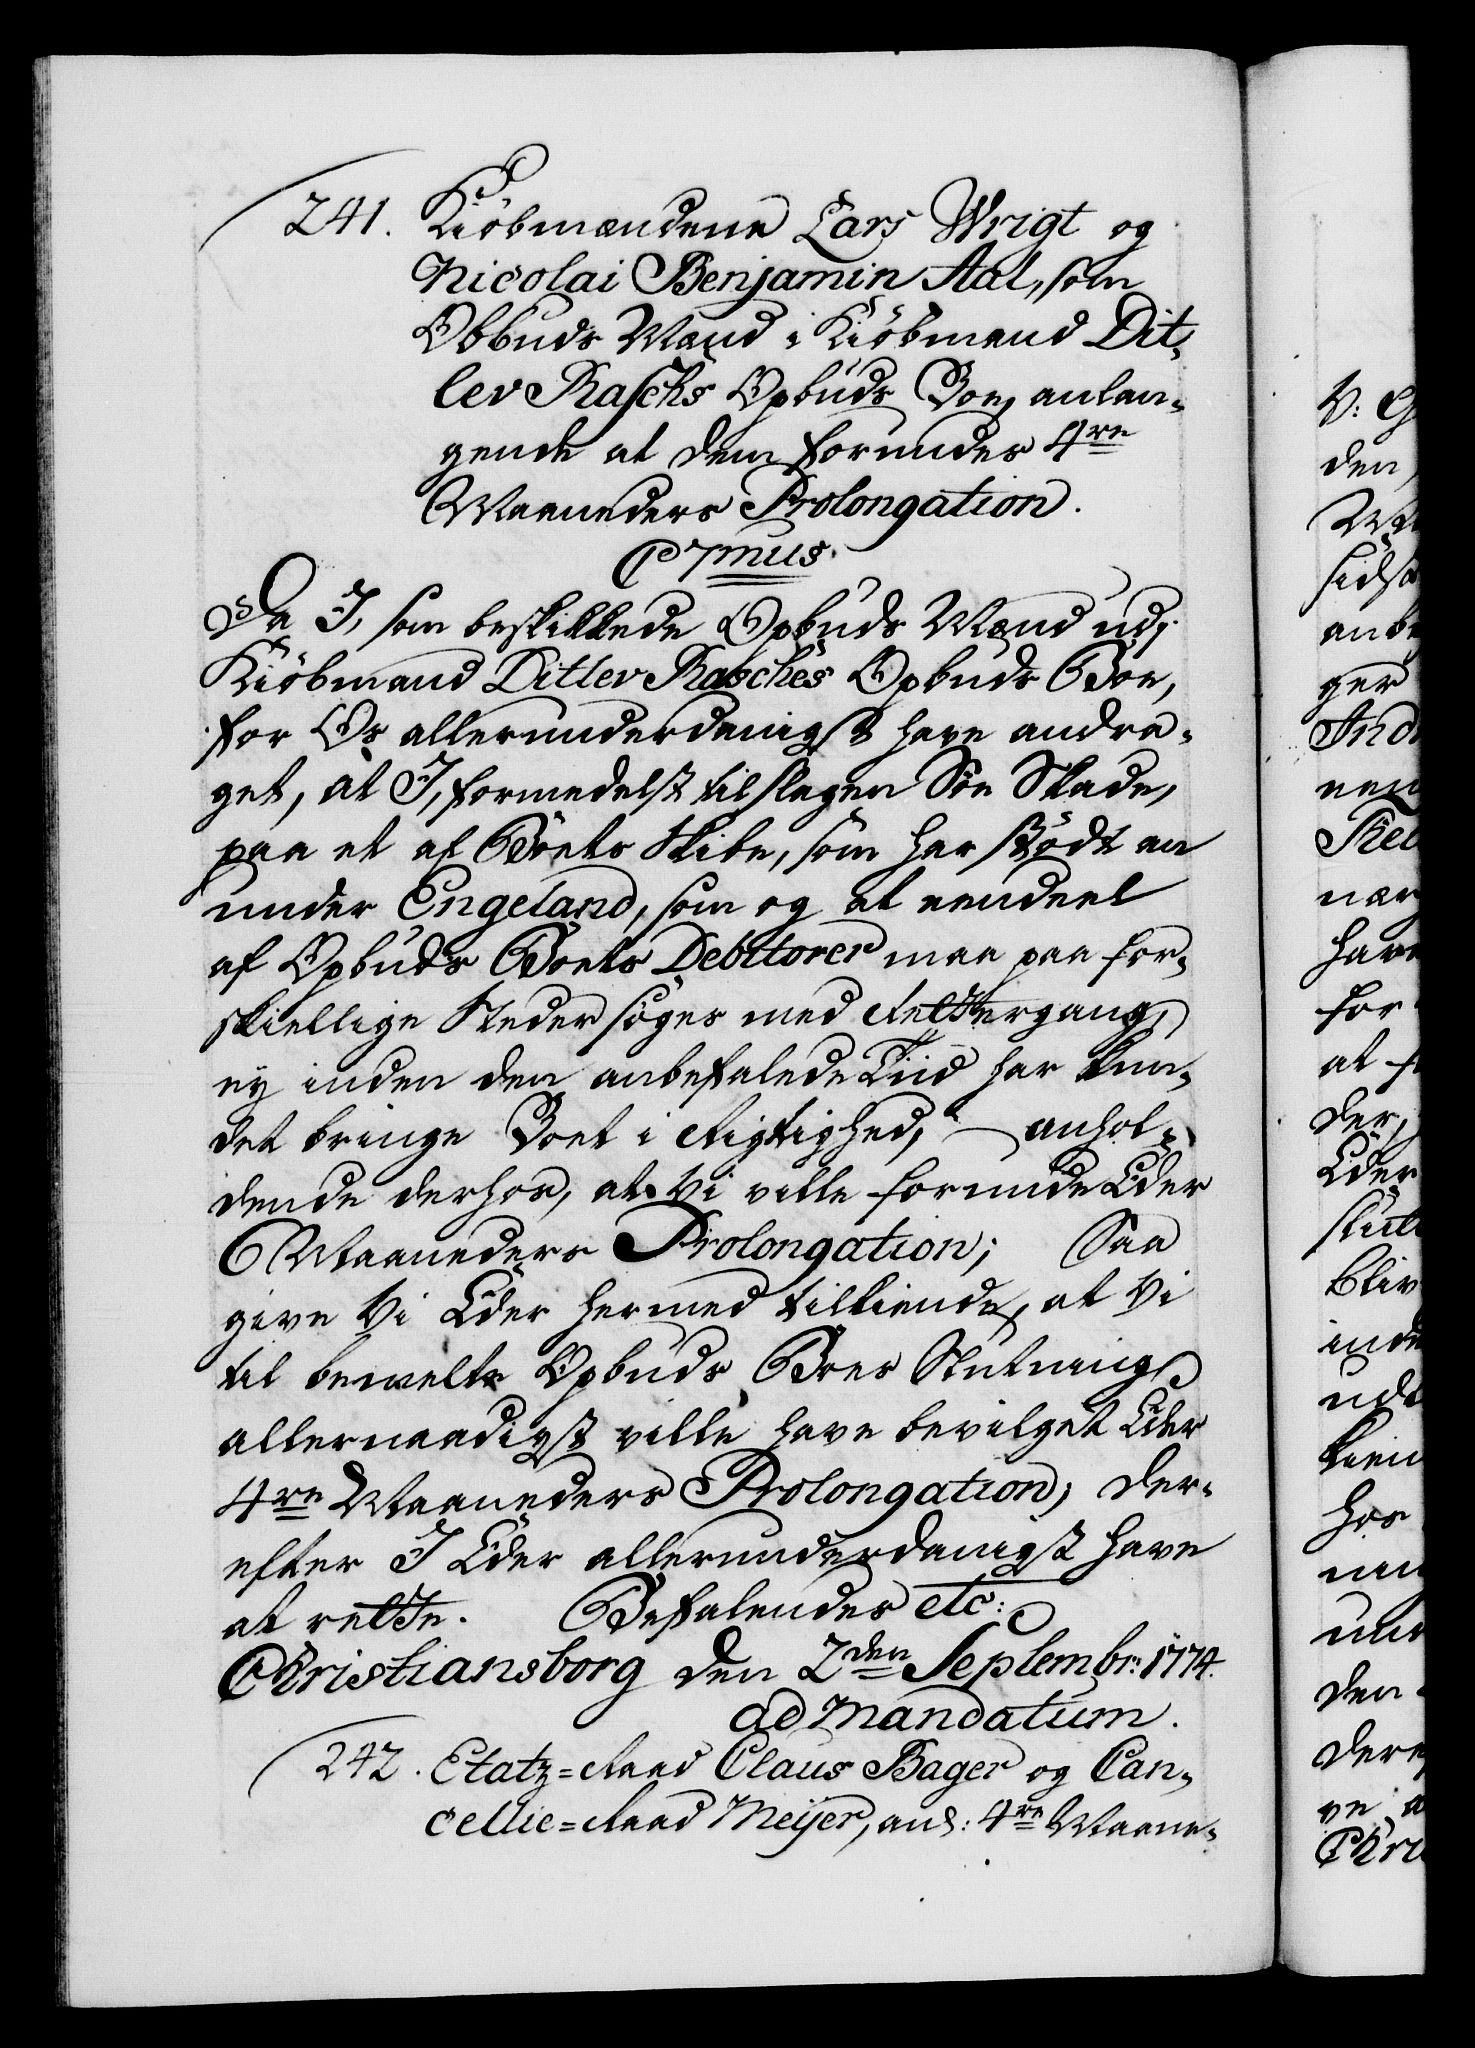 241. Kiöbmændene Lars Wrigt og
Nicolai Benjamin Aal, som
Obbuds Mænd i Kiöbmand Dit-
lev Raschs Opbuds Boe, anlan-
gende at dem forundes 4re
Maaneders Prolongation.
C 7mus.
Da I, som beskikkede Opbuds Mænd udi
Kiöbmand Ditlev Rasches Opbuds Boe,
for Os allerunderdanigst have andra-
get, at I, formedelst tilslagen Söe Skade,
paa et af Boets Skibe, som har stödt an
under Engeland, som og at eendeel
af Opbuds Boets Debitorer maa paa for-
skiellige Steder söges med Rettergang,
ey inden den anbefalede Tiid har kun-
det bringe Boet i Rigtighed, anhol-
dende derhos, at Vi ville forunde Eder
6 Maaneders Prolongation; Saa
give Vi Eder hermed tilkiende, at Vi
til bemelte Opbuds Boes Slutning
allernaadigst ville have bevilget Eder
4re Maaneders Prolongation; der-
efter I Eder allerunderdanigst have
at rette. Befalendes etc:
Christiansborg den 2den Septembr: 1774.
ad Mandatum.
242. Etatz=Raad Claus Bager og Can-
cellie=Raad Meÿer, anl: 4re Maane-
V: G
den
ger
Ind
nær
have
for
at
der,
Eder
bliv
inde
udt
kien
hos
den
dere
ve a
Chri